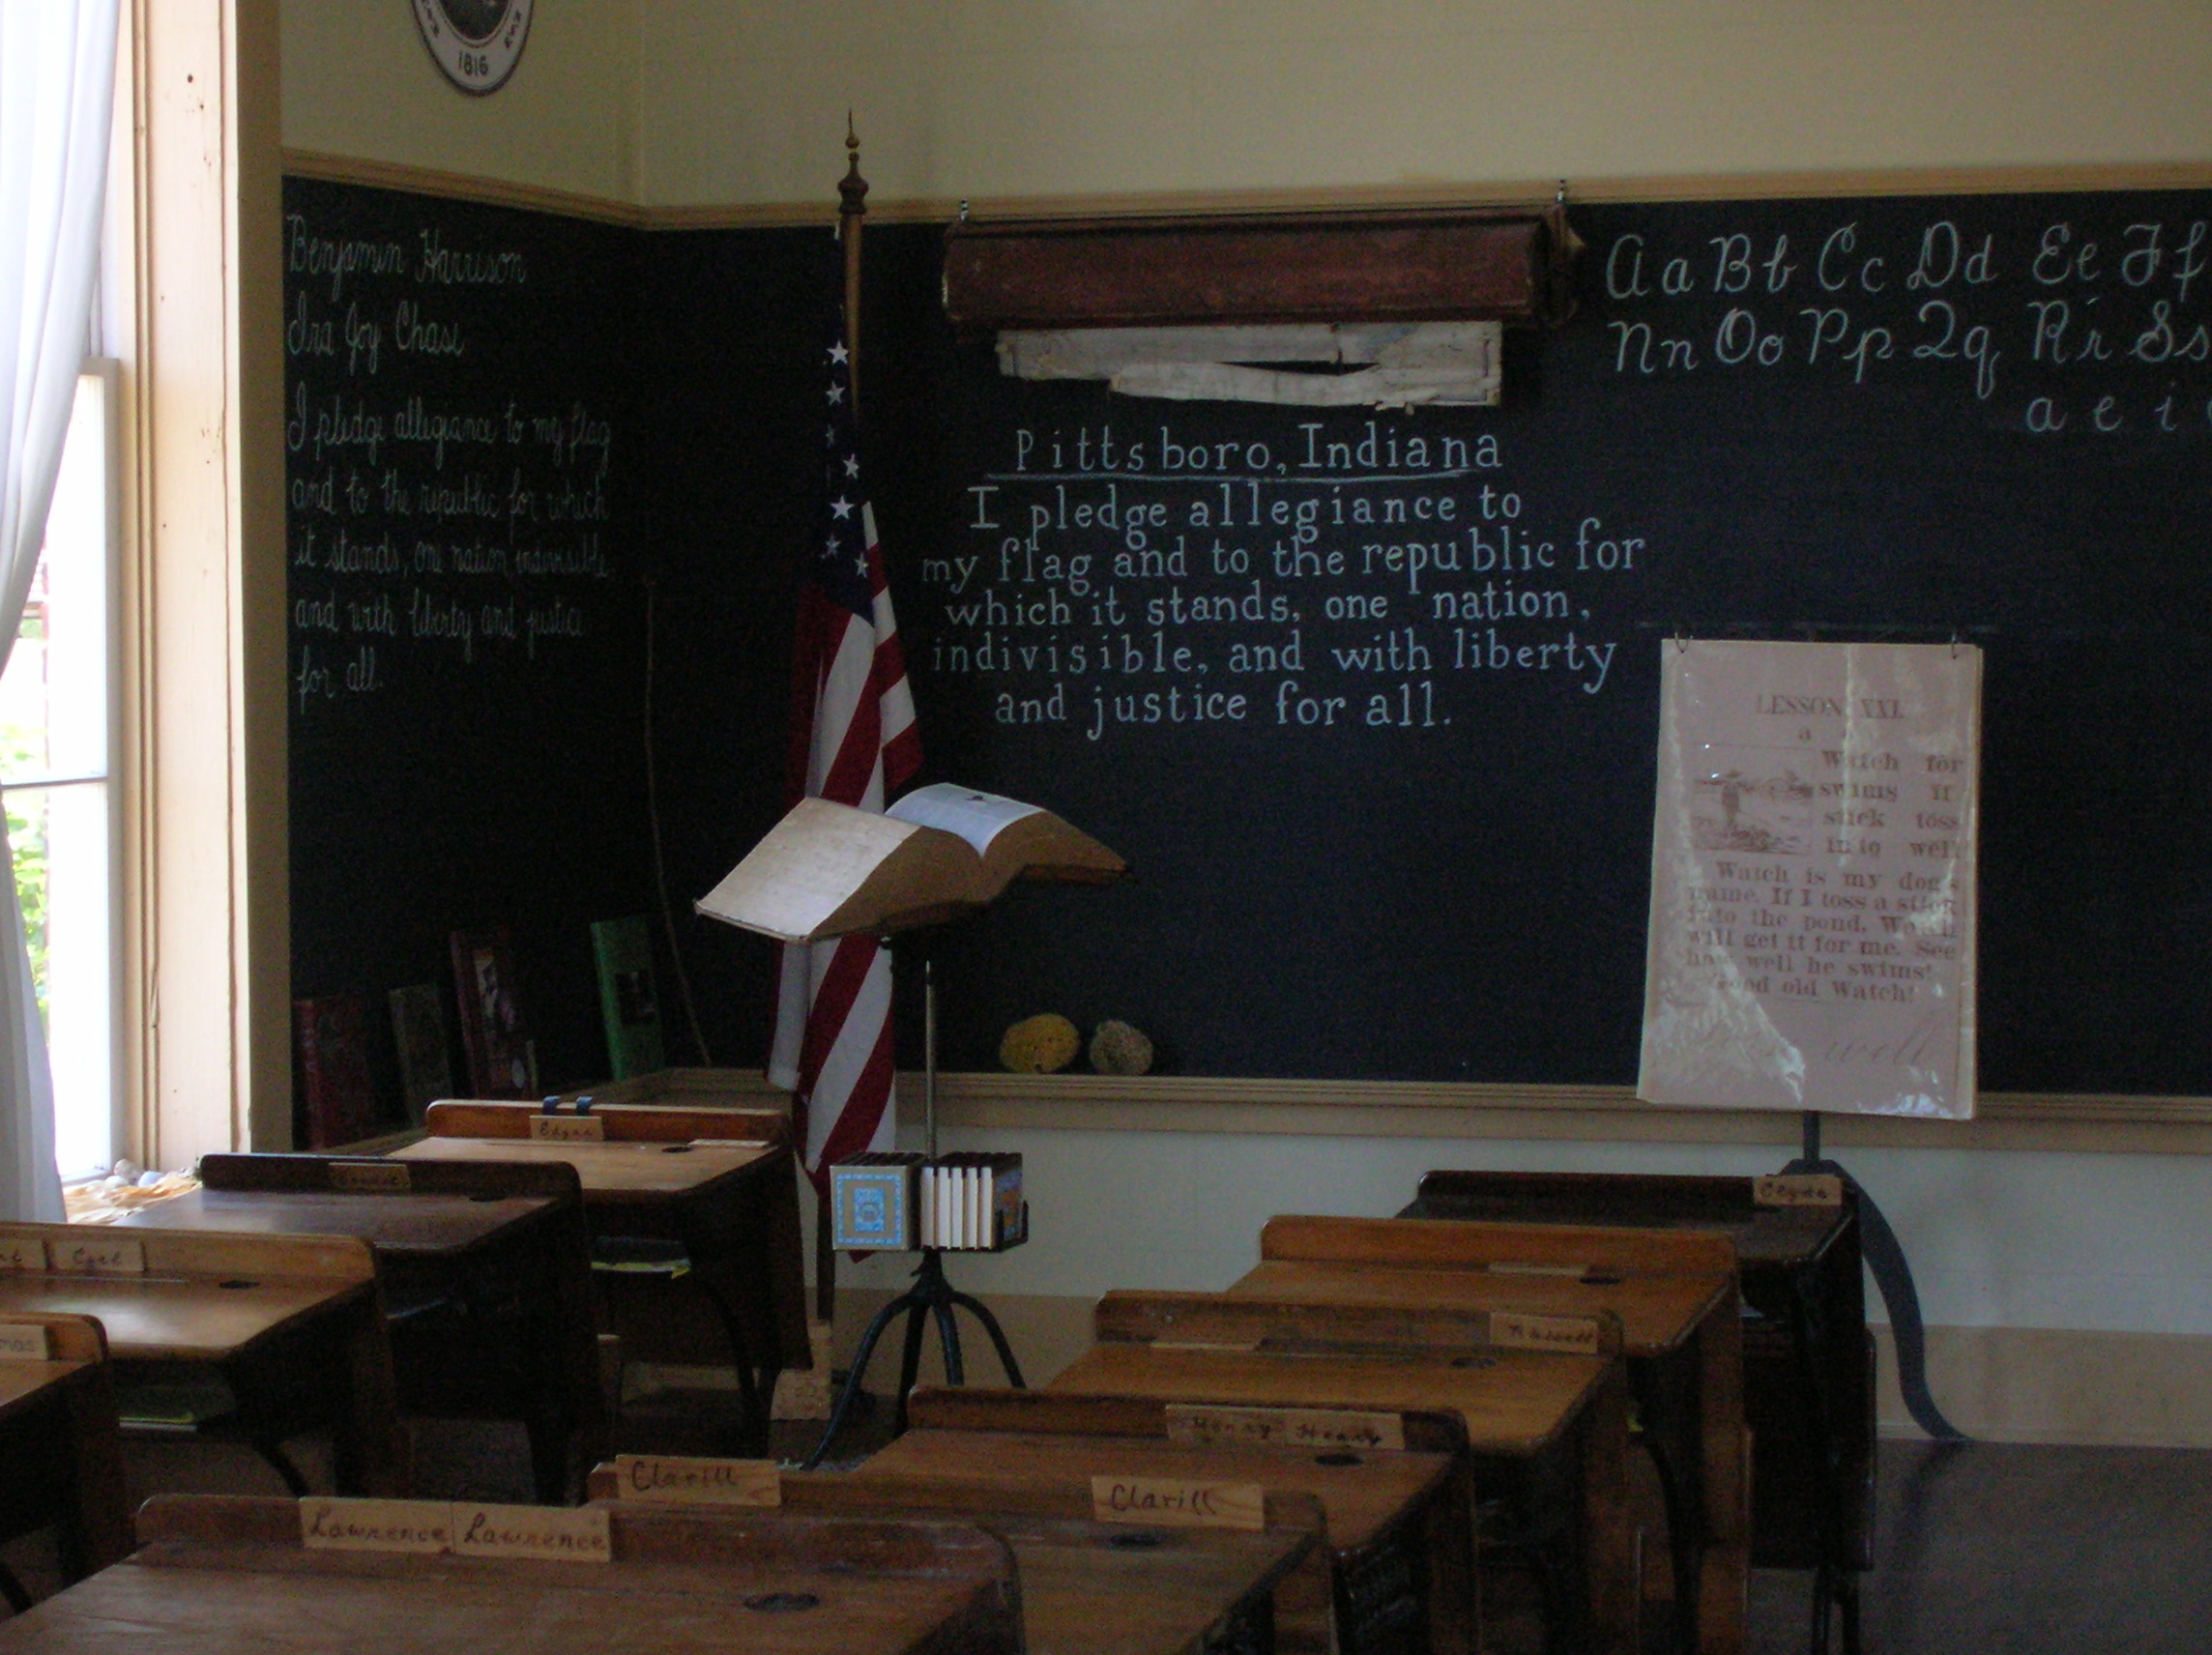 1816
Benjamin Harrison
Ira Joy Chase
I pledge allegiance to my flag
and to the republic for which
it stands, one nation indivisible
and with liberty and justice
for all.
Pittsboro, Indiana
I pledge allegiance to
my flag and to the republic for
which it stands, one nation,
indivisible, and with liberty
and justice for all.
Aa Bb Cc Dd Ee Ff
Nn Oo Pp Qq Rr Ss
a e i
LESSON XXI.
a
Watch for
swims if
stick toss
into well
Watch is my dog's
name. If I toss a stick
into the pond, Watch
will get it for me. See
how well he swims!
Good old Watch!
well
Edgar
Clyde
Henry Henry
Clarill
Clarill
Lawrence Lawrence